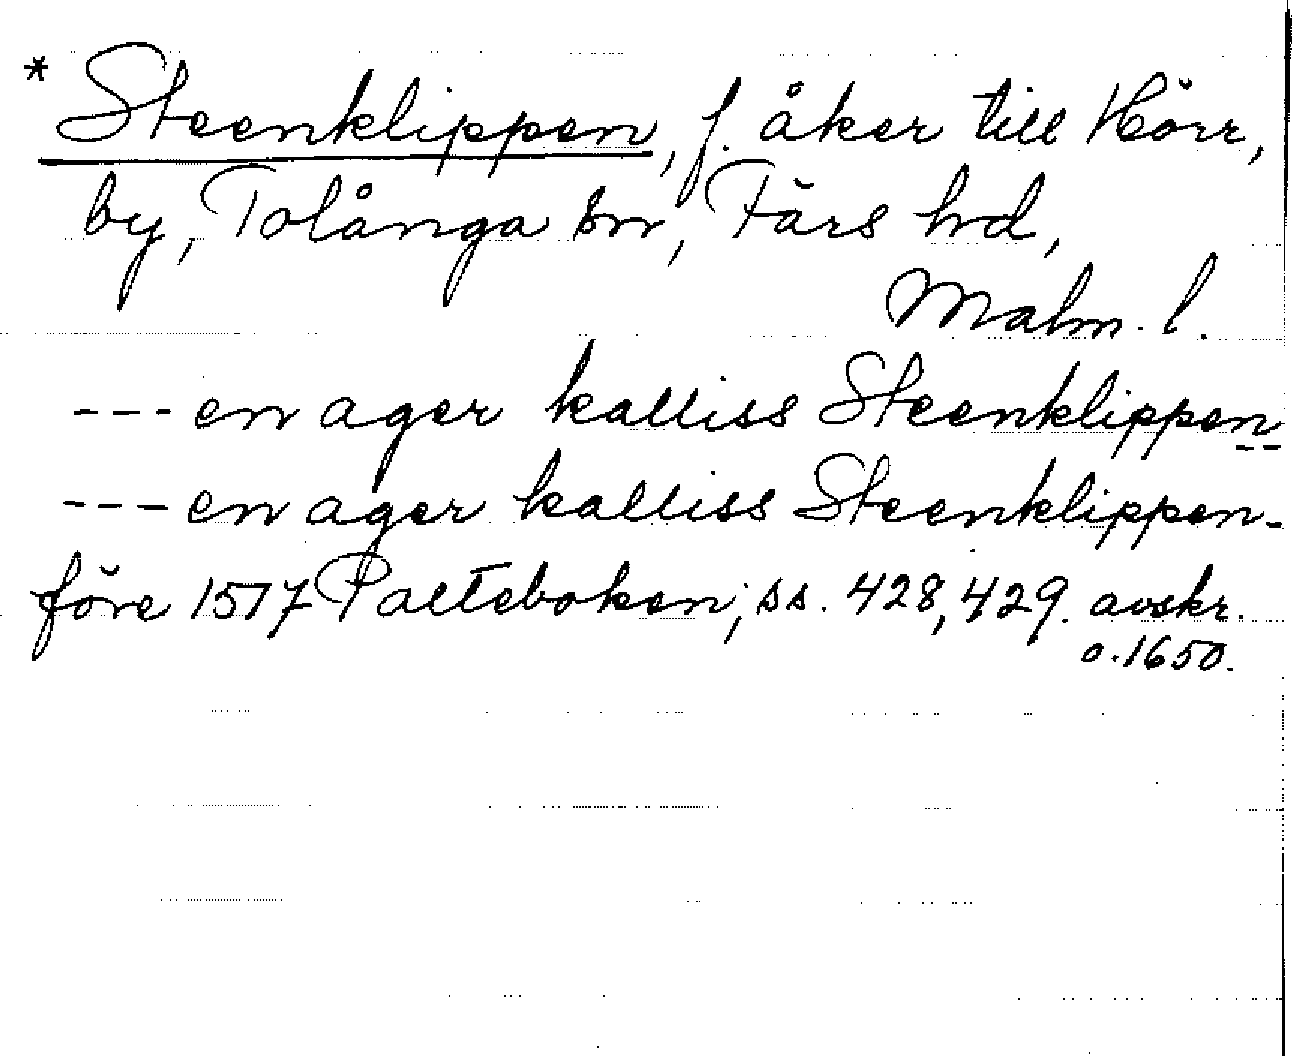 * Steenklippen, f. åker till Hörr,
by, Tolånga sn, Färs hd,
Malm. l.
--- en ager kalliss Steenklippen
--- en ager kalliss Steenklippen-
före 1517 Palteboken; ss. 428, 429. avskr.
o. 1650.